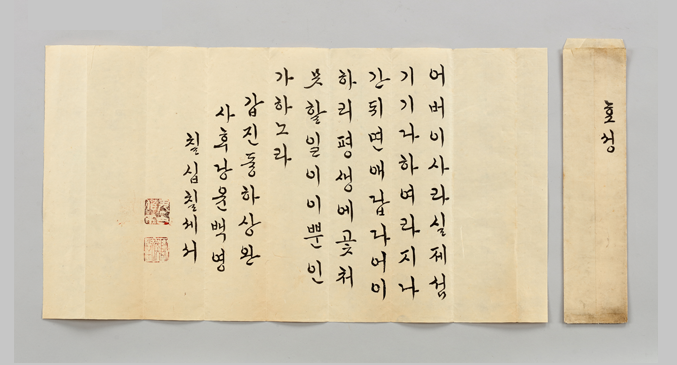 어버이사라실제셤
기기다하여라지나
간뒤면애닯다어이
하리평생에곳쳐
못할일이이뿐인
가하노라
갑진듕하상완
사후당윤백영
칠십칠세서
효성